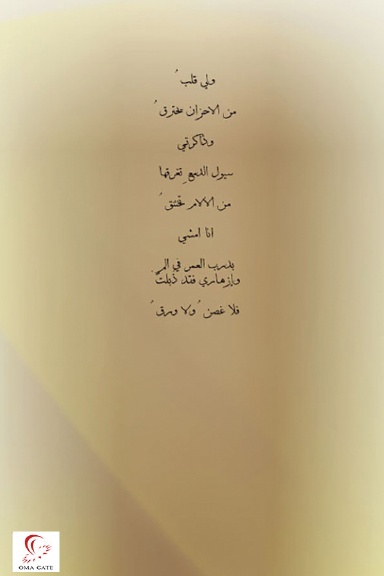 ولي قلب ُ
من الاحزان محترق ُ
وذاكرتي
سيول الدمع ِ تغرقها
من الالام تختنق ُ
انا امشي
بدرب العمر في الم ٍ
وازهاري فقد ذبلت ْ
فلا غصن ُ ولا ورق ُ
OMA GATE